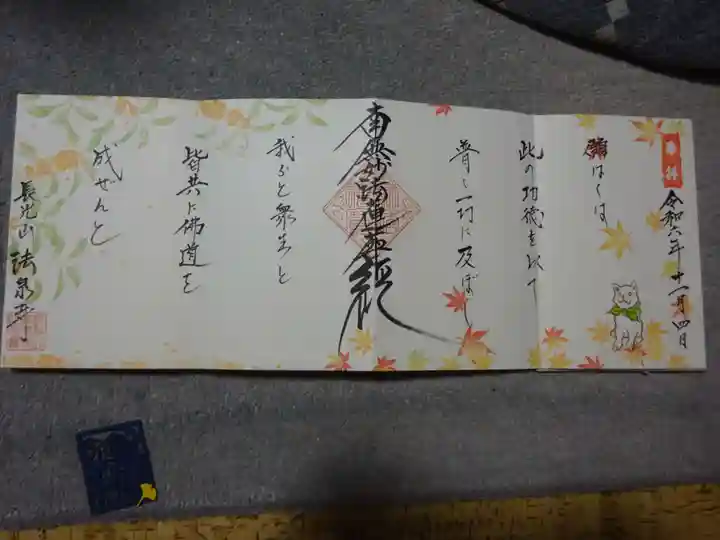 奉拝
令和六年十一月四日
願はくは
此の功徳を以て
普く一切に及ぼし
南無妙法蓮華経
我等と衆生と
皆共に佛道を
成ぜんと
長光山 法泉寺